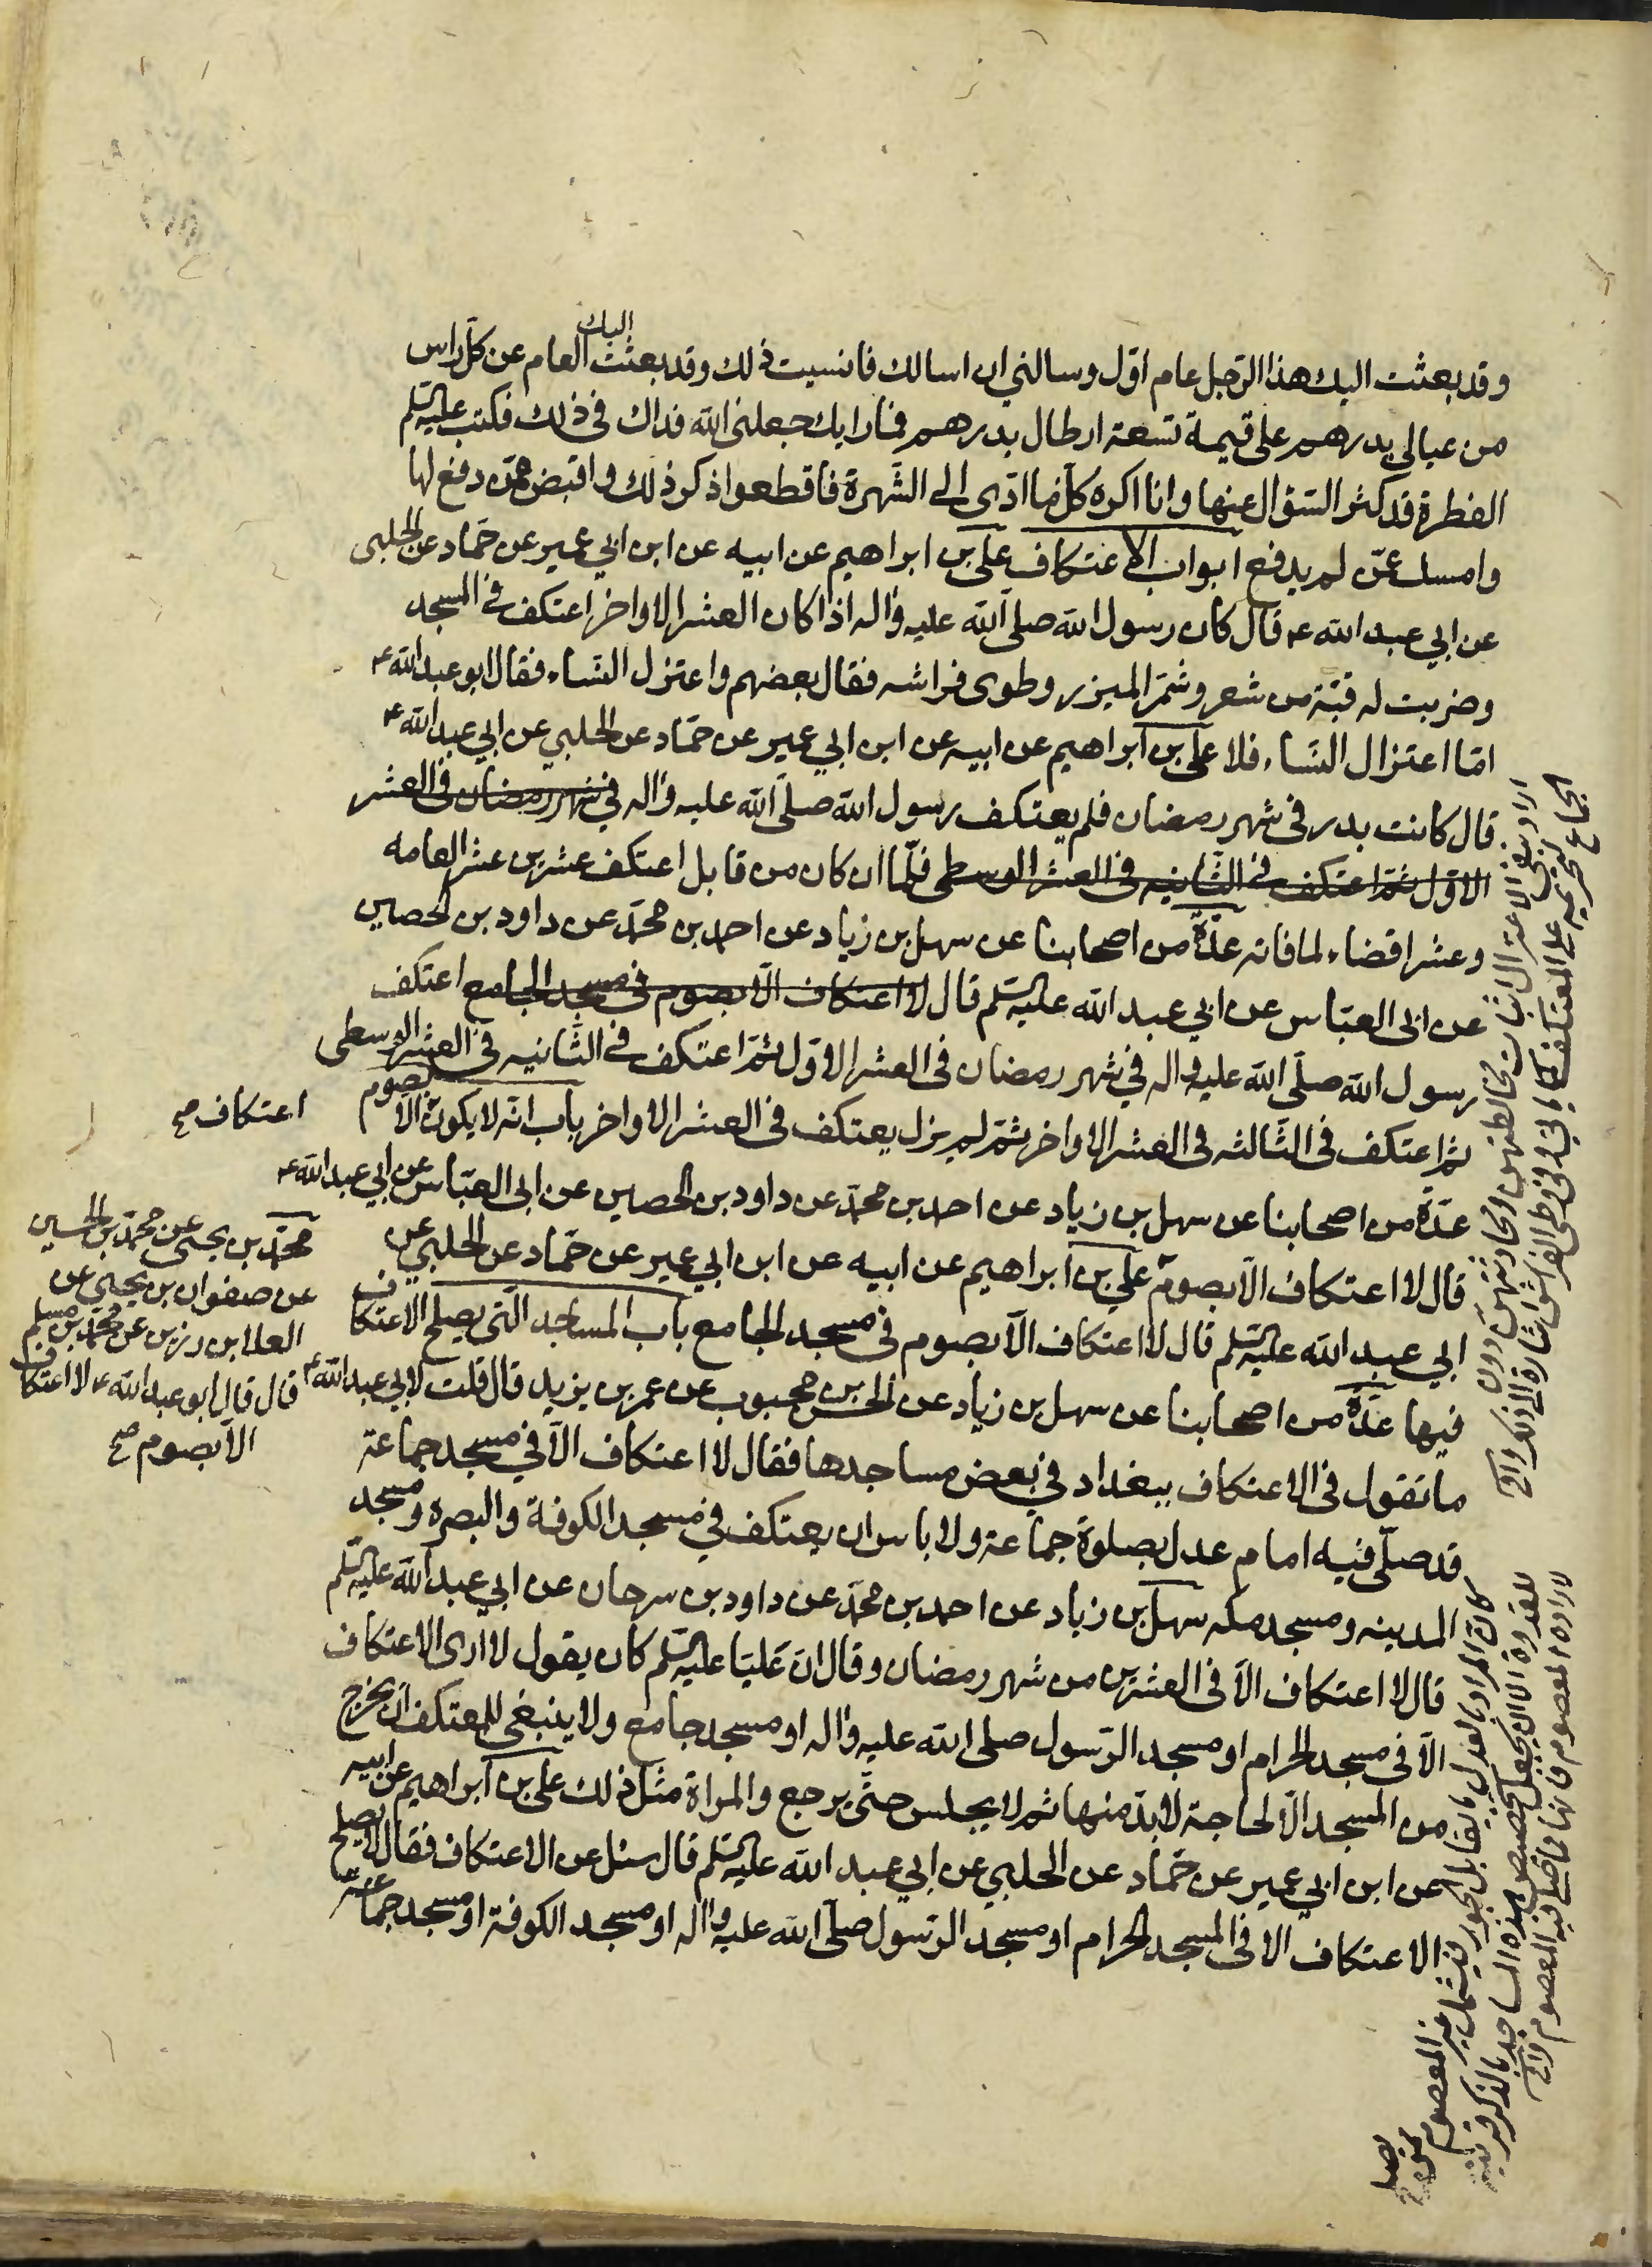 وقد بعثت اليك هذا الرجل عام اوّل وسالني ان اسالك فانسيت ذلك وقد بعثت اليك العام عن كل راس
من عيالي بدرهم على قيمة تسعة ارطال بدرهم فما رايك جعلني الله فداك في ذلك فكتب عليه السلم
الفطرة قد كثر السؤال عنها وانا اكره كل ما ادّى الى الشهرة فاقطعوا ذكر ذلك واقبض ممّن دفع لها
وامسك عمّن لم يدفع ابواب الاعتكاف علي بن ابراهيم عن ابيه عن ابن ابي عمير عن حمّاد عن الحلبي
عن ابي عبد الله ع قال كان رسول الله صلى الله عليه واله اذا كان العشر الاواخر اعتكف في المسجد
وضربت له قبّة من شعر وشمّر الميزر وطوى فراشه فقال بعضهم واعتزل النساء فقال ابو عبد الله ع
امّا اعتزال النساء فلا علي بن ابراهيم عن ابيه عن ابن ابي عمير عن حمّاد عن الحلبي عن ابي عبد الله ع
قال كانت بدر في شهر رمضان فلم يعتكف رسول الله صلى الله عليه واله في شهر رمضان في العشر
الاوّل ثمّ اعتكف في الثانيه في العشر الوسطى فلمّا ان كان من قابل اعتكف عشرين عشرا لعامه
وعشرا قضاء لما فاته عدّة من اصحابنا عن سهل بن زياد عن احمد بن محمّد عن داود بن الحصين
عن ابي العبّاس عن ابي عبد الله عليه السلم قال لا اعتكاف الّا بصوم في مسجد الجامع اعتكف
رسول الله صلّى الله عليه واله في شهر رمضان في العشر الاوّل ثمّ اعتكف في الثّانيه في العشر الوسطى
ثم اعتكف في الثّالثه في العشر الاواخر ثمّ لم يزل يعتكف في العشر الاواخر باب انّه لا يكون الّا بصوم
اعتكاف صح
عدّة من اصحابنا عن سهل بن زياد عن احمد بن محمّد عن داود بن الحصين عن ابي العبّاس عن ابي عبد الله ع
قال لا اعتكاف الّا بصوم علي بن ابراهيم عن ابيه عن ابن ابي عمير عن حمّاد عن الحلبي عن
ابي عبد الله عليه السلم قال لا اعتكاف الّا بصوم في مسجد الجامع باب المساجد الّتي يصلح الاعتكاف
فيها عدّة من اصحابنا عن سهل بن زياد عن الحسن بن محبوب عن عمر بن يزيد قال قلت لابي عبد الله ع
ما تقول في الاعتكاف ببغداد في بعض مساجدها فقال لا اعتكاف الّا في مسجد جماعة
قد صلّى فيه امام عدل بصلوة جماعة ولا باس ان يعتكف في مسجد الكوفة والبصره ومسجد
المدينه ومسجد مكه سهل بن زياد عن احمد بن محمّد عن داود بن سرحان عن ابي عبد الله عليه السلم
قال لا اعتكاف الّا في العشرين من شهر رمضان وقال انّ عليّا عليه السلم كان يقول لا ارى الاعتكاف
الّا في مسجد الحرام او مسجد الرّسول صلى الله عليه واله او مسجد جامع ولا ينبغي للمعتكف ان يخرج
من المسجد الّا لحاجة لا بدّ منها ثم لا يجلس حتّى يرجع والمراة مثل ذلك علي بن ابراهيم عن ابيه
عن ابن ابي عمير عن حمّاد عن الحلبي عن ابي عبد الله عليه السلم قال سئل عن الاعتكاف فقال لا يصلح
الاعتكاف الا في المسجد الحرام او مسجد الرّسول صلّى الله عليه واله او مسجد الكوفة او مسجد جماعة
محمّد بن يحيى عن محمّد بن الحسين
عن صفوان بن يحيى عن
العلا بن رزين عن محمّد بن مسلم
قال قال ابو عبد الله ع لا اعتكاف
الّا بصوم صح
اراد بنفي الاعتزال اثبات مخالطتهن ومحادثتهن دون
الجماع لتحريمه على المعتكف كما ياتي وفي طي الفراش اشارة الى ذلك
كان المراد بالعدل ما يقابل الجور فيشمل غير المعصوم